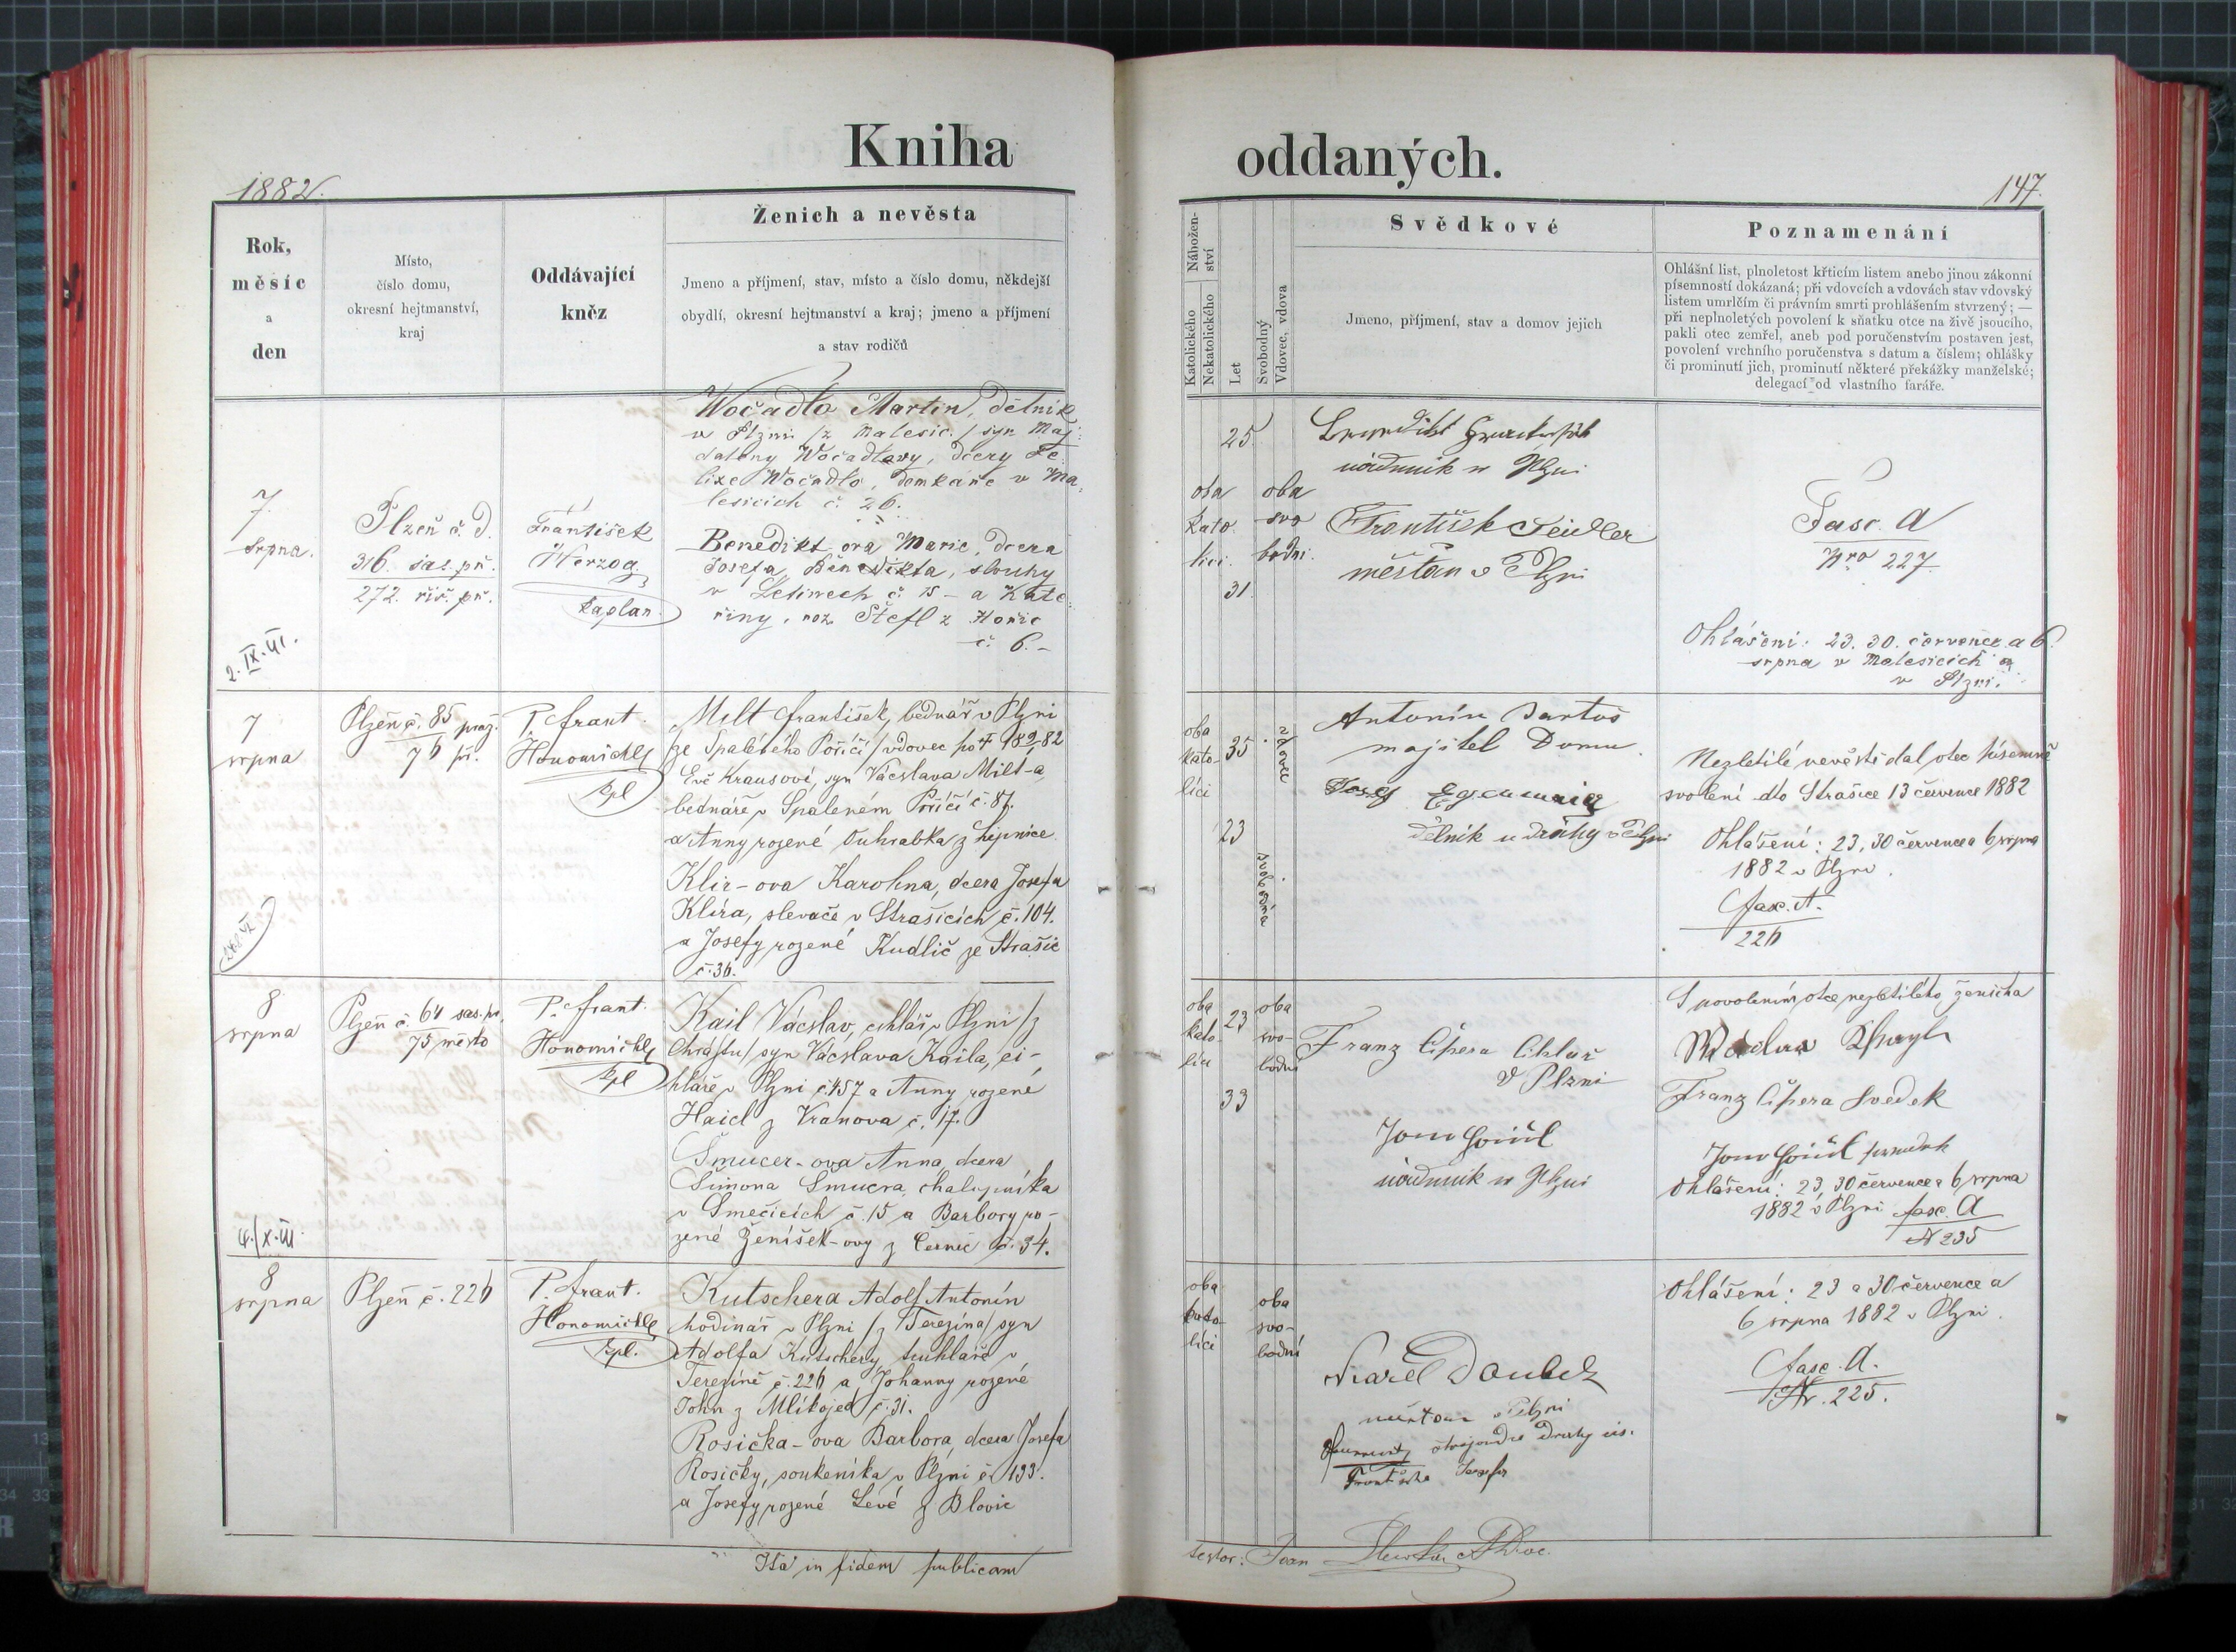 Kniha
oddaných.
1882.
147.
Rok,
měsíc
a
den
Místo,
číslo domu,
okresní hejtmanství,
kraj
Oddávající
kněz
Ženich a nevěsta
Jmeno a příjmení, stav, místo a číslo domu, někdejší
obydlí, okresní hejtmanství a kraj; jmeno a příjmení
a stav rodičů
Nábožen-
ství
Katolického
Nekatolického
Let
Svobodný
Vdovec, vdova
Svědkové
Jmeno, příjmení, stav a domov jejich
Poznamenání
Ohlášní list, plnoletost křticím listem anebo jinou zákonní
písemností dokázaná; při vdovcích a vdovách stav vdovský
listem umrlčím či právním smrti prohlášením stvrzený; —
při neplnoletých povolení k sňatku otce na živě jsoucího,
pakli otec zemřel, aneb pod poručenstvím postaven jest,
povolení vrchního poručenstva s datum a číslem; ohlášky
či prominutí jich, prominutí některé překážky manželské;
delegací od vlastního faráře.
7.
srpna.
2. IX. VI.
Plzeň č. d.
316. sas. př.
272. říš. př.
František
Herzog
kaplan
Wočadlo Martin, dělník
v Plzni /z Malesic./ syn Maj-
daleny Wočadlovy, dcery Fe-
lixe Wočadlo, domkáře v Ma-
lesicích č. 26.
Benedikt ova Marie, dcera
Josefa Benedikta, sluhy
v Letinech č. 15 - a Kate-
řiny, roz. Štefl z Hořic
č. 6. -
oba
kato
lici.
25.
31.
oba
svo
bodni.
úřadník v Plzni
František Seidler
měšťan v Plzni
Fasc. A
Nro 227.
Ohlášení: 23. 30. července a 6.
srpna v Malesicích a
v Plzni.
7
srpna
Plzeň č. 85 praž.
76 př.
P. Frant.
Honomichl
kpl
Milt František, bednář v Plzni
/ze Spaleného Poříčí/ vdovec po † 18 9/2 82
Evě Krausové, syn Václava Milt-a
bednáře v Spaleném Poříčí č. 87.
a Anny rozené Ouhrabka z Lipnice.
Klír-ova Karolina, dcera Josefa
Klíra, slevače v Strašicích č. 104.
a Josefy rozené Kudlič ze Strašic
č. 36.
oba
kato-
líci
35
23
vdovec
svobodna
Antonín Bartoš
majitel Domu
Dělník u dráhy v Plzni
Nezletilé nevěstě dal otec písemně
svolení dto Strašice 13 července 1882
Ohlášení: 23, 30 července a 6 srpna
1882 v Plzni.
fasc. A.
226
8
srpna
4./X. III.
Plzeň č. 64 sas. př.
75 město
P. Frant.
Honomichl
kpl
Kail Václav, cihlář v Plzni /z
Chrástu/ syn Václava Kaila, ci-
hláře v Plzni č. 457 a Anny rozené
Haicl z Vranova č. 17.
Šmucer-ova Anna, dcera
Šimona Šmucra, chalupníka
v Smečicích č. 15 a Barbory ro-
zené Ženíšek-ovy z Černíc č. 34.
oba
kato-
líci
23
33
oba
svo-
bodni
Franz Čipera Cihlář
v Plzni
úřadník v Plzni
S povolením otce nezletilého ženicha
Franz Čipera Svedek
Ohlášení: 23, 30 července a 6 srpna
1882 v Plzni fasc. A
N 235
8
srpna
Plzeň č. 226
P. Frant.
Honomichl
kpl.
Kutschera Adolf Antonín
hodinář v Plzni /z Terezína/ syn
Adolfa Kutschery, truhláře v
Terezíně č. 226 a Johanny rozené
John z Mlikojed č. 31.
Rosička-ova Barbora, dcera Josefa
Rosičky, soukeníka v Plzni č. 133.
a Josefy rozené Levé z Blovic
oba
kato-
líci
oba
svo-
bodní
Karel Doubek
měšťan v Plzni
Františka Josefa
Ohlášení: 23 a 30 července a
6 srpna 1882 v Plzni.
fasc. A.
Nr. 225.
Ita in fidem publicam
testor: Joan